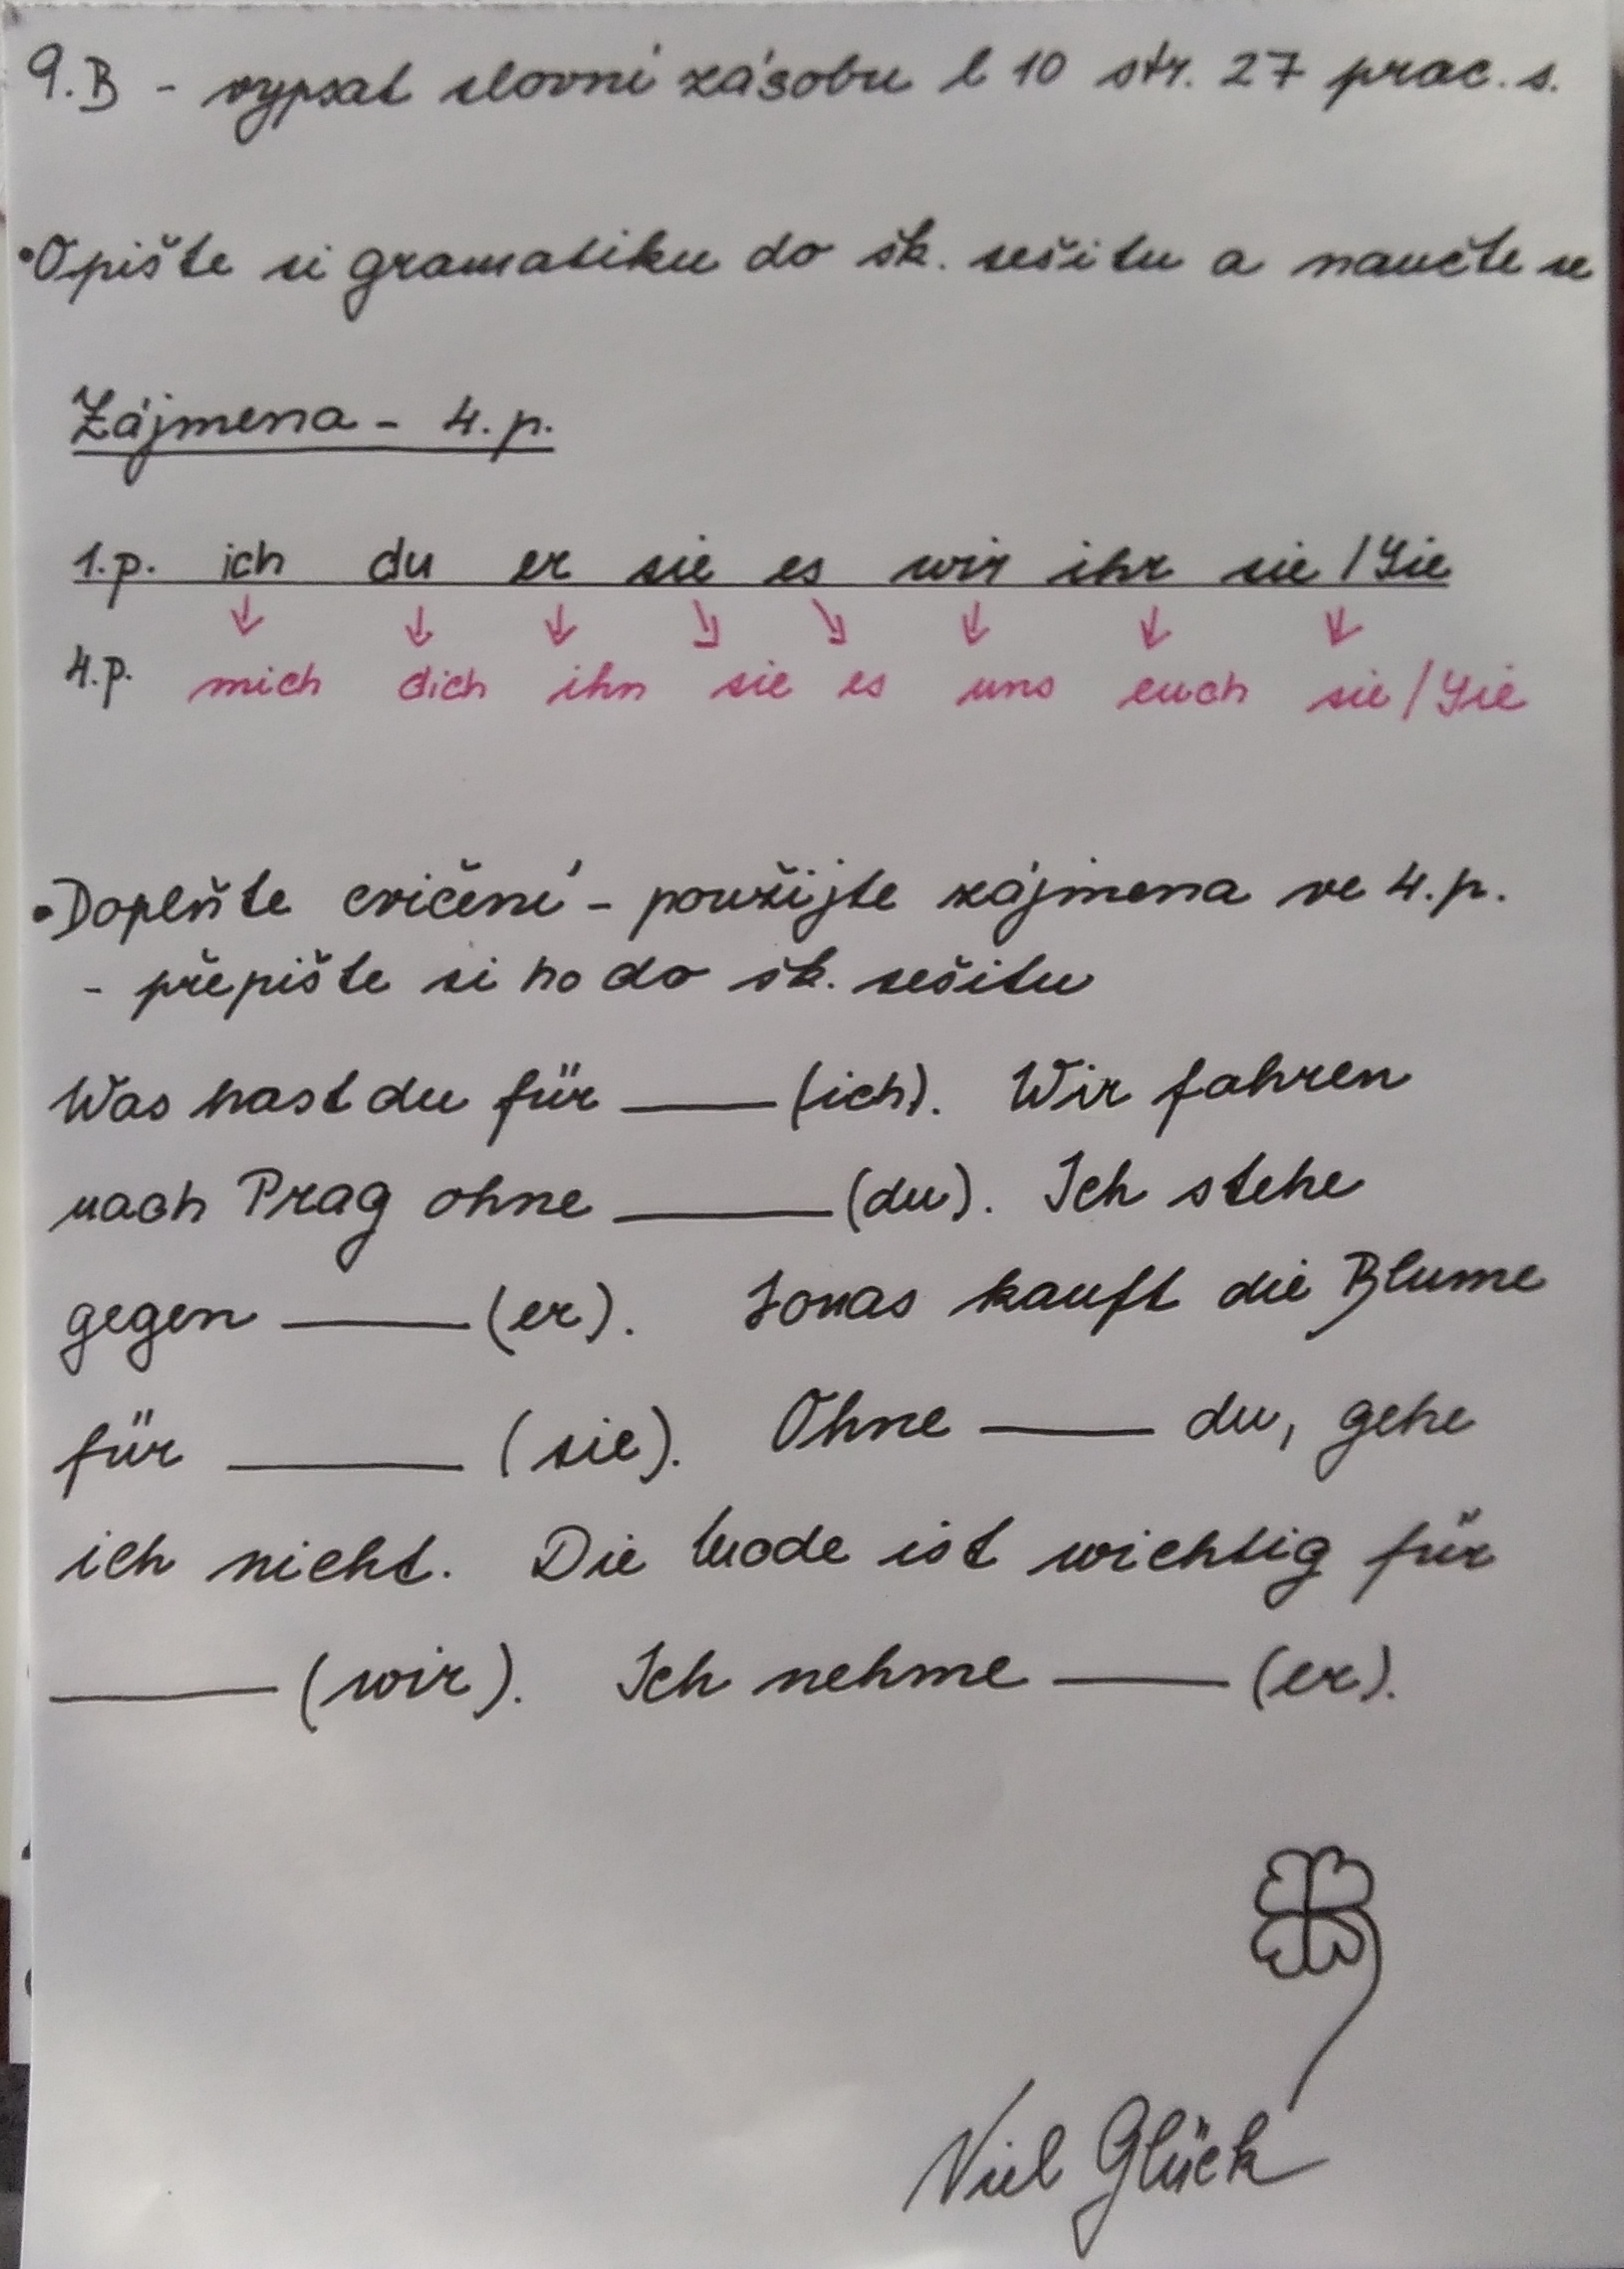 9.B - vypsat slovní zásobu l 10 str. 27 prac. s.
•Opište si gramatiku do šk. sešitu a naučte se
Zájmena - 4. p.
1.p. ich du er sie es wir ihr sie / Sie
4.p. mich dich ihn sie es uns euch sie / Sie
•Doplňte cvičení - použijte zájmena ve 4. p.
- přepište si ho do šk. sešitu
Was hast du für ____ (ich). Wir fahren
nach Prag ohne ____ (du). Ich stehe
gegen ____ (er). Jonas kauft die Blume
für ____ (sie). Ohne ____ du, gehe
ich nicht. Die Mode ist wichtig für
____ (wir). Ich nehme ____ (er).
Viel Glück